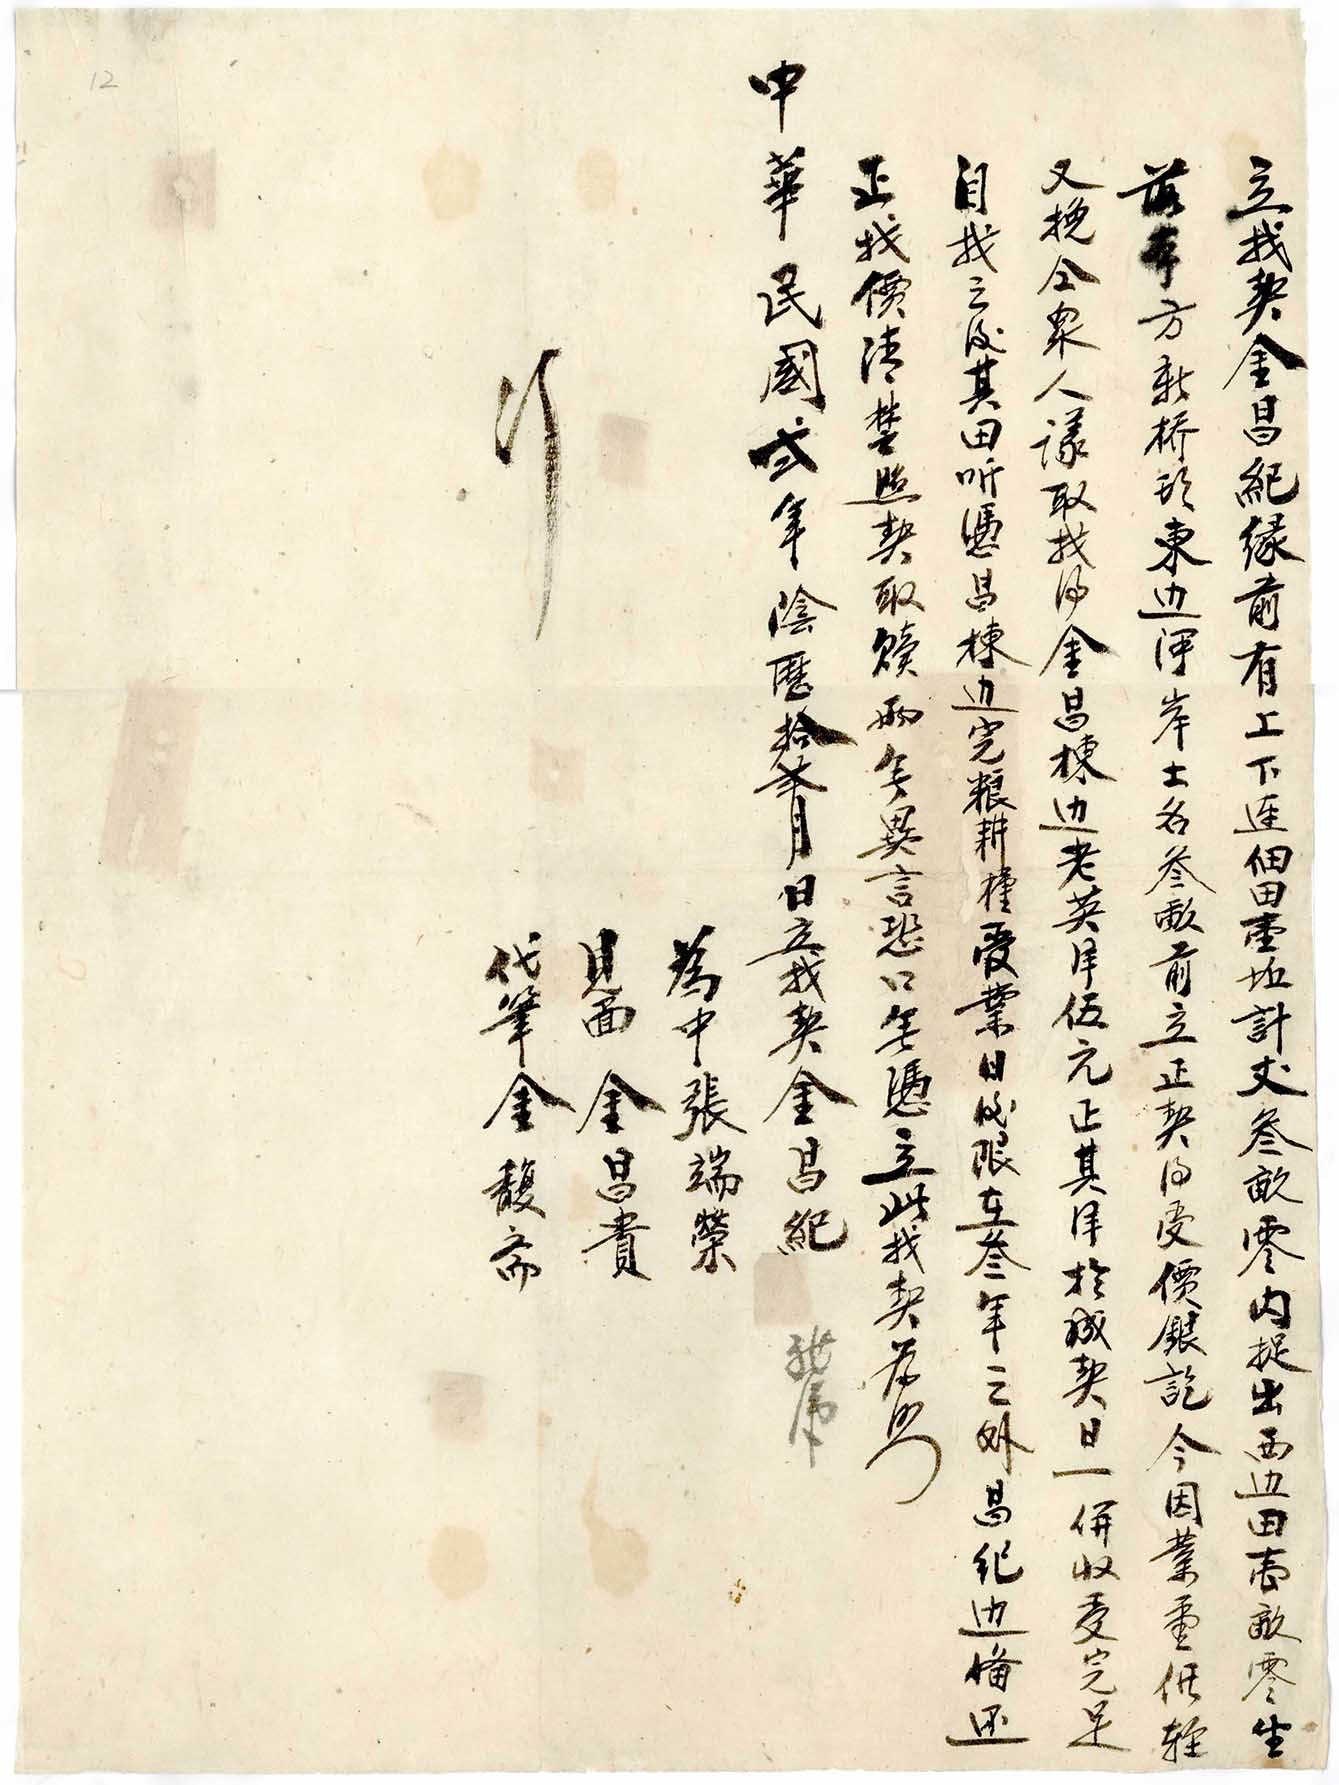 立找契金昌紀緣前有上下連佃田壹坵計丈叁畝零内捉出西边田壹畝零坐
落本方新桥头東边河岸土名叁畝前立正契得受價銀訖今因業重价輕
又挽仝衆人議取找得金昌棟边老英洋伍元正其洋於成契日一併收受完足
自找之後其田听憑昌棟边完粮耕種受業日後限在叁年之外昌紀边俻还
正找價清楚照契取贖兩無異言恐口無憑立此找契存照
中華民國弍年陰歷拾弍月日立找契金昌紀
為中張端榮
見面金昌貴
代筆金馥斋
12